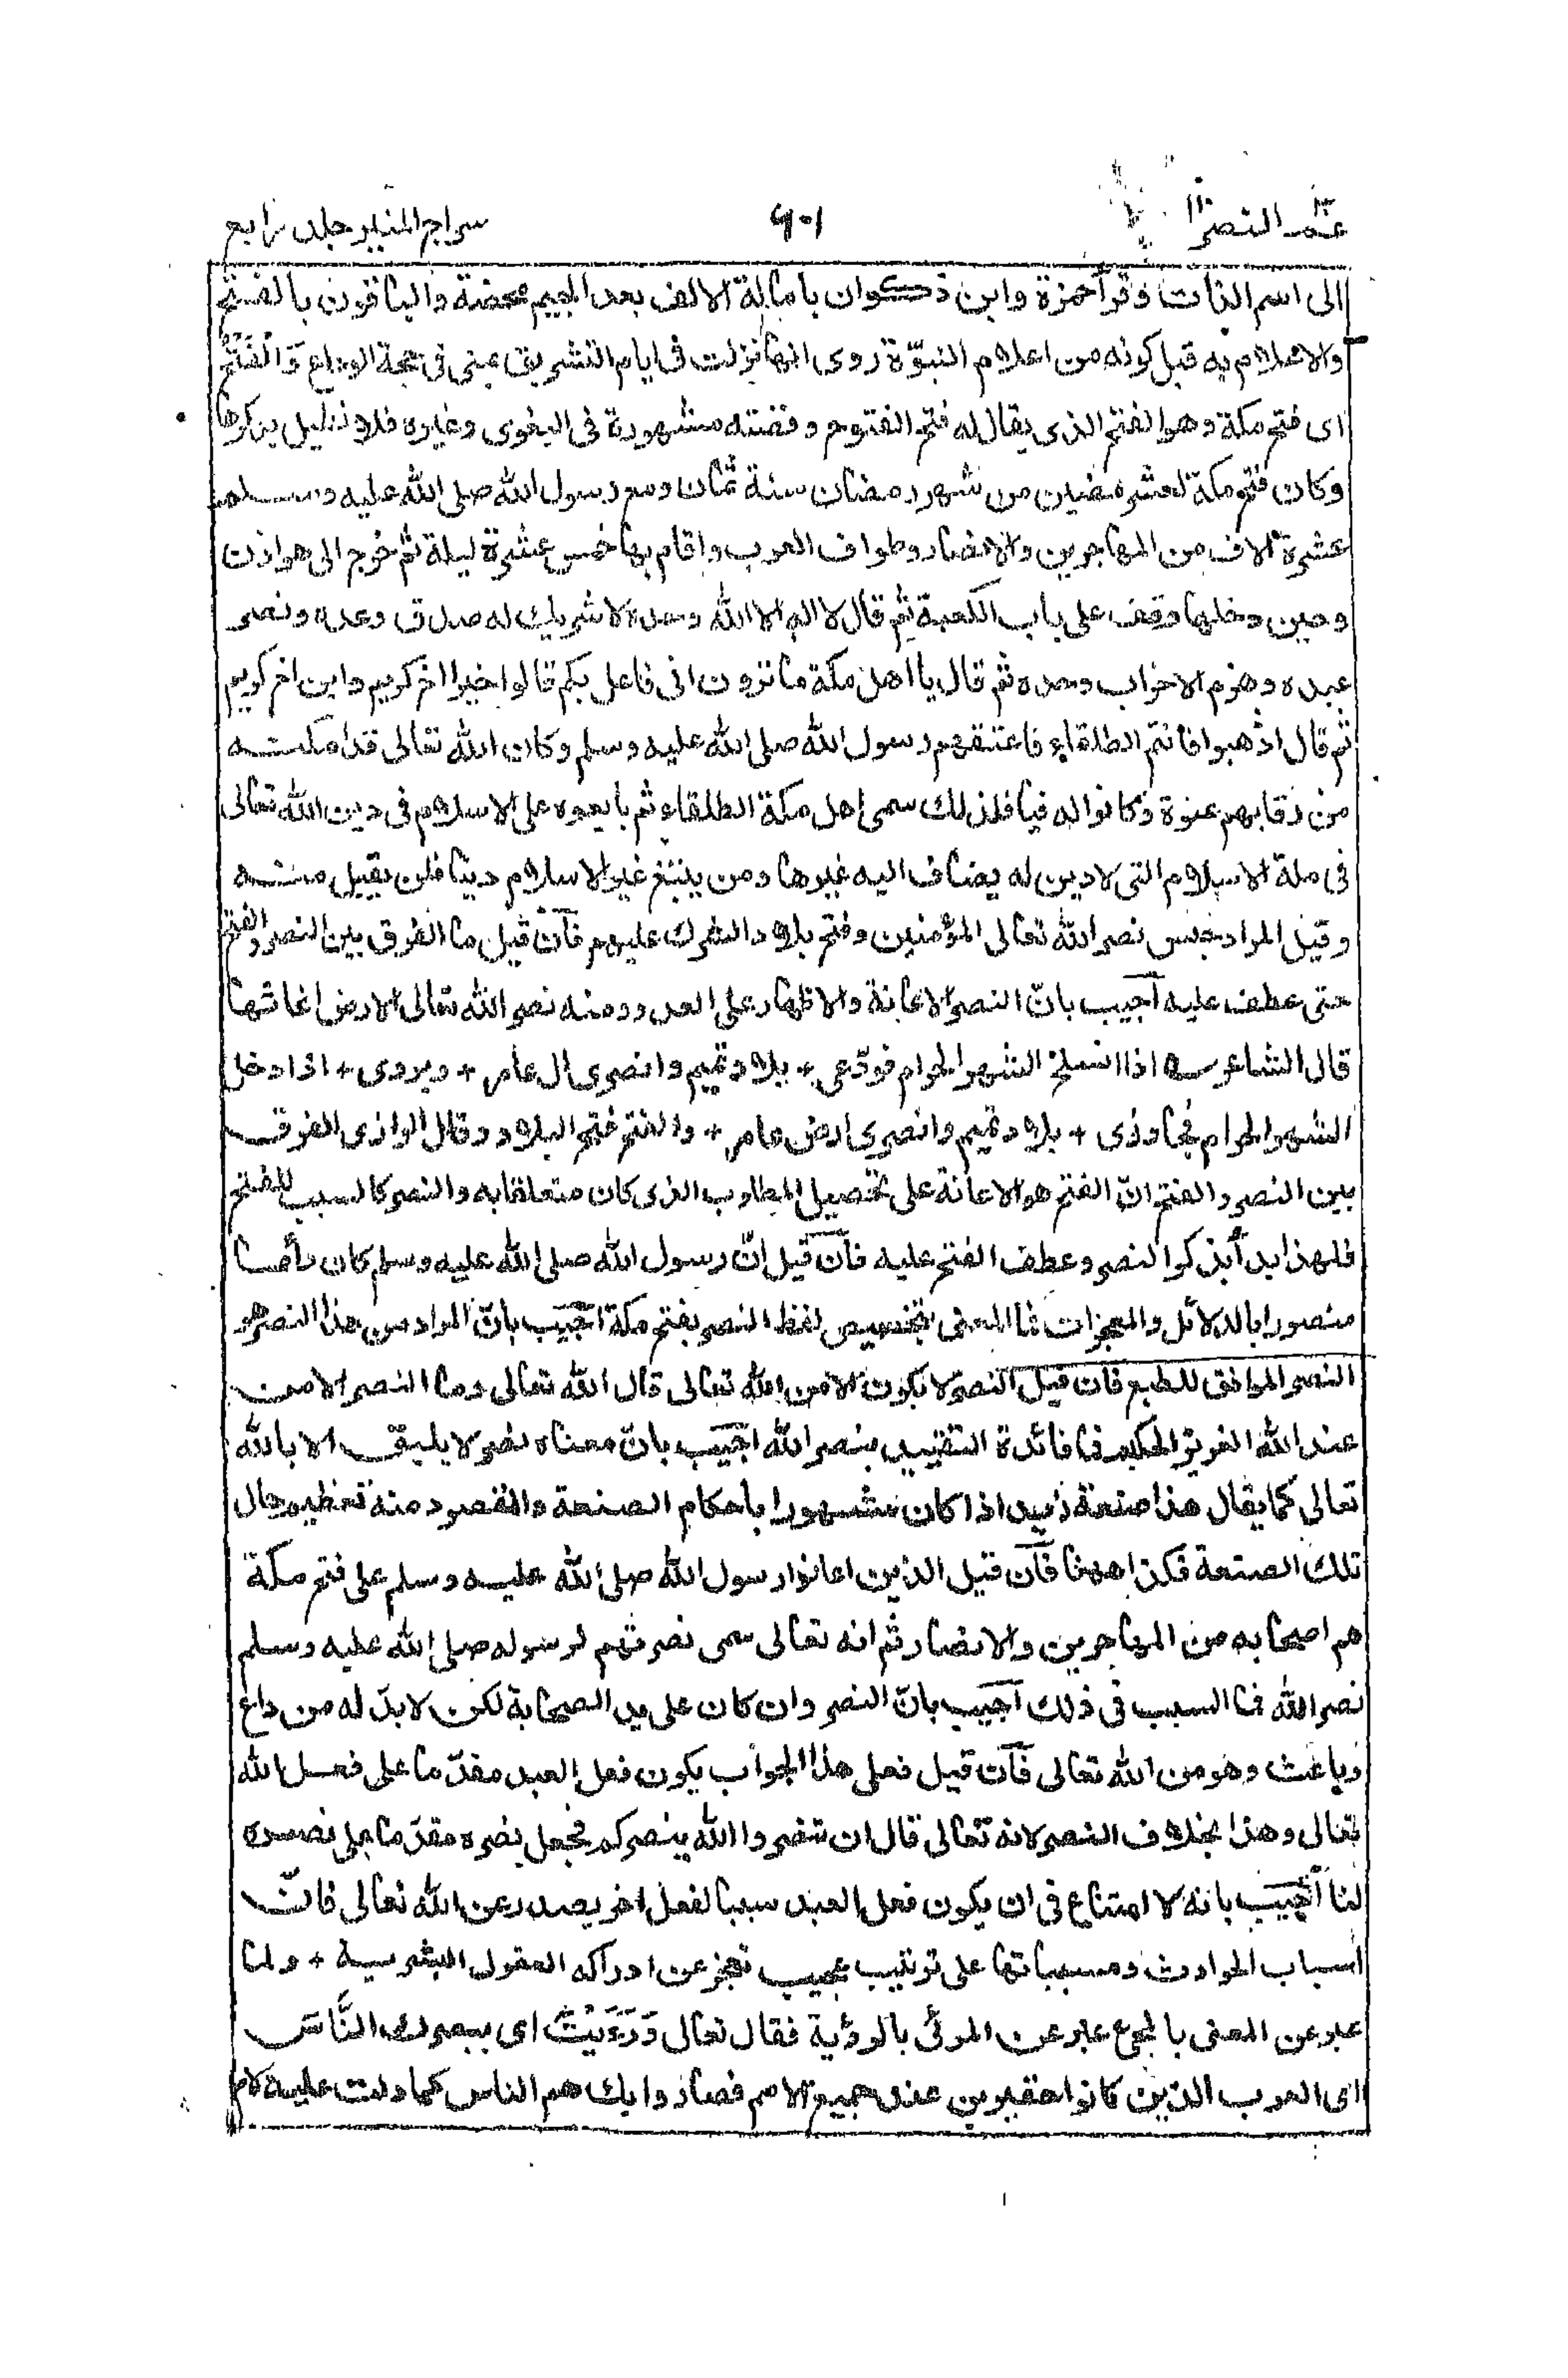 عمّ النصر ٦٠١ سراج المنير جلد رابع
الى اسم الذات وقرأ حمزة وابن ذكوان بامالة الالف بعد الجيم محضة والباقون بالفتح
والاعلام به قبل كونه من اعلام النبوّة روى انها نزلت فى ايام التشريق بمنى فى حجة الوداع وَالْفَتْحُ
اى فتح مكة وهو الفتح الذى يقال له فتح الفتوح وقصته مشهورة فى البغوى وغيره فلا نطيل بذكرها
وكان فتح مكة لعشر مضين من شهر رمضان سنة ثمان ومع رسول الله صلى الله عليه وسلم
عشرة الاف من المهاجرين والانصار وطوائف العرب واقام بها خمس عشرة ليلة ثم خرج الى هوازن
وحين دخلها وقف على باب الكعبة ثم قال لا اله الا الله وحده لا شريك له صدق وعده ونصر
عبده وهزم الاحزاب وحده ثم قال يا اهل مكة ما ترون انى فاعل بكم قالوا خيرا اخ كريم وابن اخ كريم
ثم قال اذهبوا فانتم الطلقاء فاعتقهم رسول الله صلى الله عليه وسلم وكان الله تعالى قد امكنه
من رقابهم عنوة وكانوا له فيا فلذلك سمى اهل مكة الطلقاء ثم بايعوه على الاسلام فى دين الله تعالى
فى ملة الاسلام التى لا دين له يضاف اليه غيرها ومن يبتغ غير الاسلام دينا فلن يقبل منه
وقيل المراد جنس نصر الله تعالى المؤمنين وفتح بلاد الشرك عليهم فان قيل ما الفرق بين النصر والفتح
حتى عطف عليه اجيب بانّ النصر الاعانة والاظهار على العدو ومنه نصر الله تعالى الارض اغاثها
قال الشاعر ـه اذا انسلخ الشهر الحرام فودّعى + بلاد تميم وانصرى ال عامر + ويروى + اذا دخل
الشهر الحرام فجاوزى + بلاد تميم وانصرى ارض عامر + والفتح فتح البلاد وقال الرازى الفرق
بين النصر والفتح انّ الفتح هو الاعانة على تحصيل المطلوب الذى كان متعلقا به والنصر كالسبب للفتح
فلهذا بدأ بذكر النصر وعطف الفتح عليه فان قيل انّ رسول الله صلى الله عليه وسلم كان دائما
منصورا بالدلائل والمعجزات فما المعنى بتخصيص لفظ النصر بفتح مكة اجيب بانّ المراد من هذا النصر هو
النصر الموافق للطبع فان قيل النصر لا يكون الا من الله تعالى قال الله تعالى وما النصر الا من
عند الله العزيز الحكيم فما فائدة التقييد بنصر الله اجيب بانّ معناه نصر لا يليق الا بالله
تعالى كما يقال هذا صنعة زيد اذا كان مشهورا باحكام الصنعة والمقصود منه تعظيم حال
تلك الصنعة فكذا ههنا فان قيل الذين اعانوا رسول الله صلى الله عليه وسلم على فتح مكة
هم اصحابه من المهاجرين والانصار ثم انه تعالى سمى نصرتهم لرسوله صلى الله عليه وسلم
نصر الله فما السبب فى ذلك اجيب بانّ النصر وان كان على يد الصحابة لكن لا بدّ له من داع
وباعث وهو من الله تعالى فان قيل فعلى هذا الجواب يكون فعل العبد مقدّما على فعل الله
تعالى وهذا بخلاف النصر لانه تعالى قال ان تنصروا الله ينصركم فجعل نصره مقدّما على نصره
لنا اجيب بانه لا امتناع فى ان يكون فعل العبد سببا لفعل اخر يصدر عن الله تعالى فانّ
اسباب الحوادث ومسبباتها على ترتيب عجيب تعجز عن ادراكه العقول البشرية + ولما
عبر عن المعنى بالمجىء عبر عن المرئى بالرؤية فقال تعالى وَرَءَيْتَ اى ببصرك النَّاسَ
اى العرب الذين كانوا حقيرين عند جميع الامم فصاروا بك هم الناس كما دلت عليه لام